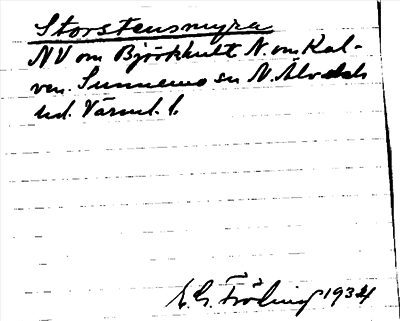 Storstensmyra
NV om Björkhult N. om Kal-
ven. Sunnemo sn N. Älvdals
hd. Värml. l.
1934